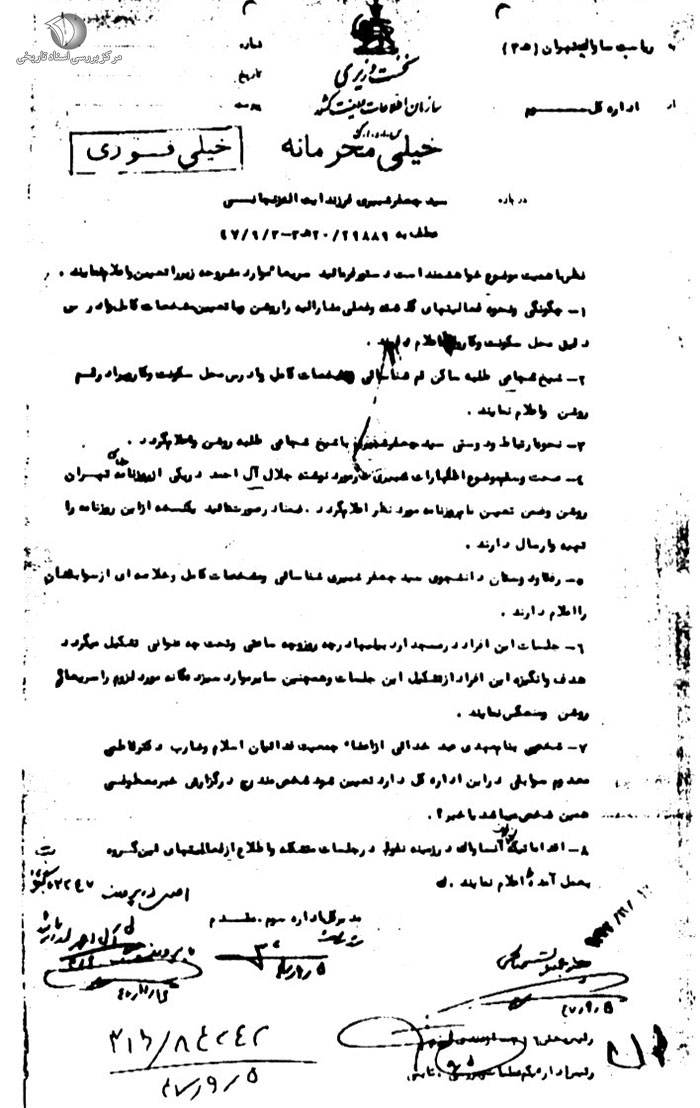 مرکز بررسی اسناد تاریخی
ریاست ساواک تهران (۲۰ ﻫ ۳)
از اداره کل سوم
شماره
تاریخ
پیوست
نخست وزیری
سازمان اطلاعات و امنیت کشور
س.ا.و.ا.ک
خیلی محرمانه
خیلی فوری
درباره سید جعفر شبیری فرزند آیت الله زنجانی
عطف به ۲۹۸۸۹/۲۰ ﻫ ۳-۴۷/۹/۲
نظر باهمیت موضوع خواهشمند است دستور فرمائید سریعا موارد مشروحه زیر را تعیین و اعلام نمایند .
۱- چگونگی و نحوه فعالیتهای گذشته و فعلی مشارالیه را روشن و با تعیین مشخصات کامل و آدرس
دقیق محل سکونت و کار وی اعلام دارند .
۲- شیخ شجاعی طلبه ساکن قم شناسائی مشخصات کامل و آدرس محل سکونت و کار وی را در قم
روشن و اعلام نمایند .
۳- نحوه ارتباط و دوستی سید جعفر شبیری با شیخ شجاعی طلبه روشن و اعلام گردد .
۴- صحت و سقم موضوع اظهارات شبیری در مورد نوشته جلال آل احمد در یکی از روزنامه های تهران
روشن و ضمن تعیین نام روزنامه مورد نظر اعلام گردد . ضمنا در صورتیکه یک نسخه از این روزنامه را
تهیه و ارسال دارند .
۵- رفقا و دوستان دانشجوی سید جعفر شبیری شناسائی و مشخصات کامل و خلاصه ای از سوابقشان
را اعلام دارند .
۶- جلسات این افراد در مسجد ارد بیلیها در چه روز و چه ساعتی و تحت چه عنوانی تشکیل میگردد
هدف و انگیزه این افراد از تشکیل این جلسات و همچنین سایر موارد سیزده گانه مورد لزوم را سریعا
روشن و منعکس نمایند .
۷- شخصی بنام مهدی عبد خدائی از اعضاء جمعیت فدائیان اسلام و ضارب دکتر فاطمی
معدوم سوابقی در این اداره کل دارد تعیین شود شخص مندرج در گزارش خبر معطوفی
همین شخص میباشد یا خیر ؟ .
۸- اقداماتیکه آن ساواک در زمینه نفوذ در جلسات متشکله و اطلاع از فعالیتهای این گروه
بعمل آمده اعلام نمایند . ک
مدیر کل اداره سوم . مقدم
اصل در پرونده
۳۱۶/۸۴۲۴۲
۴۷/۹/۵
۴۷/۹/۵